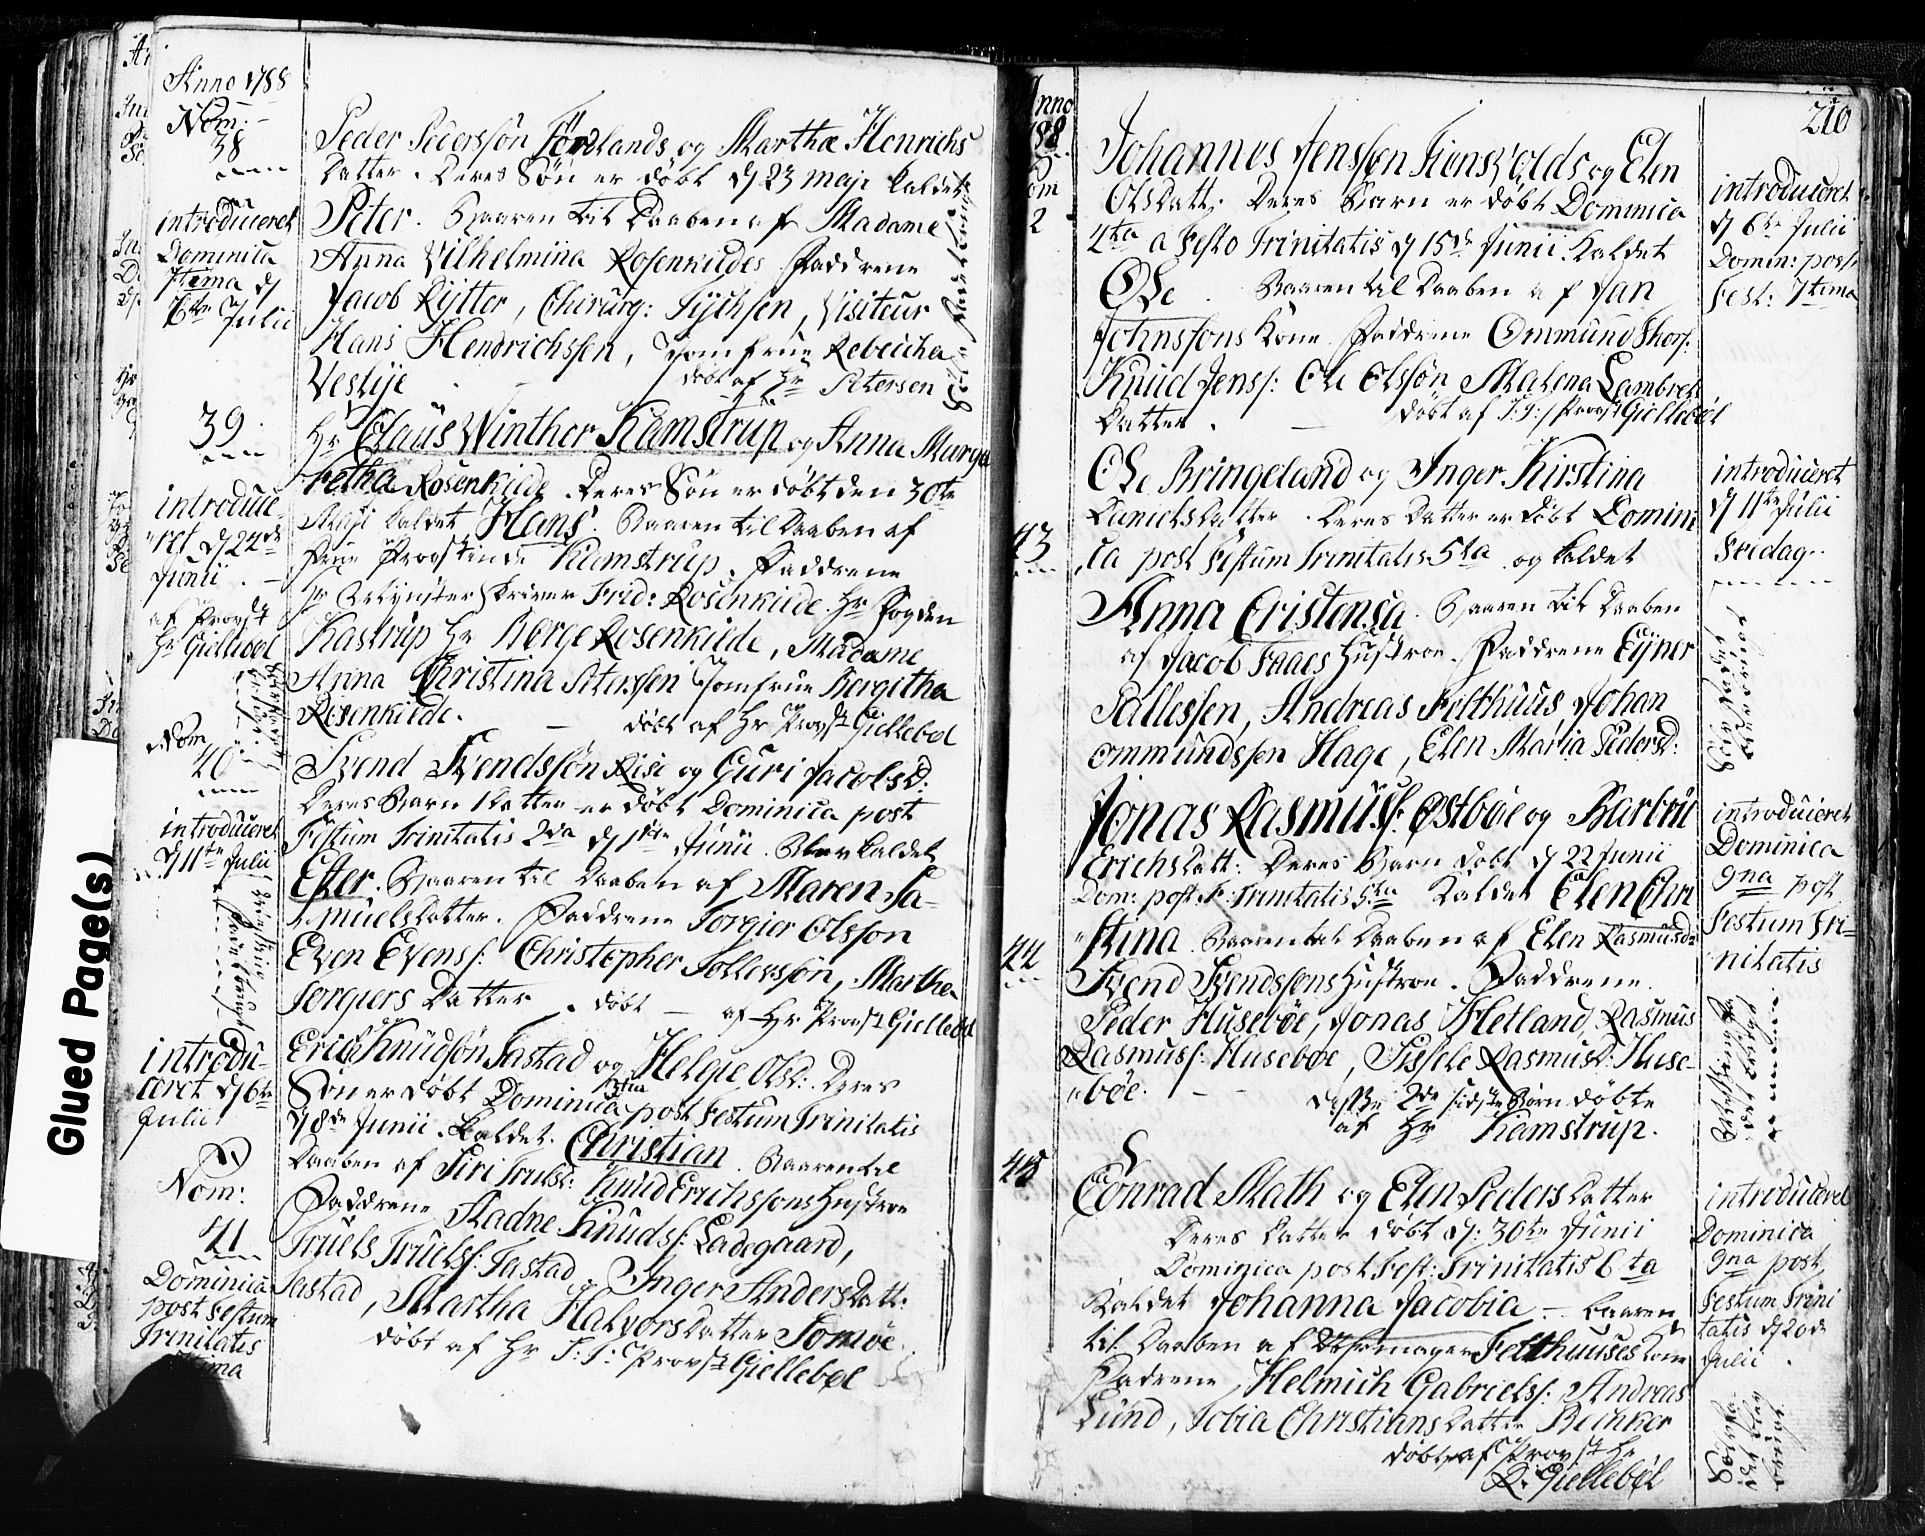 Anno 1788
Nom:
38
introduceret
Dominica
7tema d
6te Julii
Peder Pederssøn Førelands og Marthæ Henrichs
Datter. Deres Søn er døbt d 23 Maji kaldet
Peter. Baaren til Daaben af Madame
Anna Vilhelmina Rosenkildes Faddrene
Jacob Rÿtter, Chirurg: Tÿchsen, Visiteur
Hans Hendrichssen, Jomfrue Rebecha
Vestije
døbt af Hr Petersen
39
introduce-
ret d 24de
Junii.
af Provst
Hr Giellebøl
Hr Claus Winther Kamstrup og Anna Marga
retha Rosenkilde. Deres Søn er døbt den 30te
Maji kaldet Hans. Baaren til Daaben af
Frue Provstinde Kamstrup. Faddrene
Hr Frid: Rosenkilde. Hr Fogden
Kastrup Hr Børge Rosenkilde, Madame
Anna Christina Peterssen Jomfrue Bergitha
Rosenkilde.
døbt af Hr Provst Giellebøl
Nom
40
introduceret
d 11te Julii
Svend Svendssøn Rise og Guri Jacobsd:
Deres Barn Datter er døbt Dominica post
Festum Trinitatis 2da d 1ste Junii. Blev kaldet
Ester. Baaren til Daaben af Maren Sa-
muelsdatter. Faddrene Torgier Olsson
Even Evens: Christopher Tollevssøn, Marthe
Torgiers Datter. døbt — af Hr Provst Giellebøl
introdu-
ceret d 6te
Julii
Nom:
41
Dominica
post Festum
Trinitatis
Erich Knudsøn Tastad og Helge Olsd:. Deres
Søn er døbt Dominica 3tia post Festum Trinitatis
d 8de Junii. kaldet. Christian. Baaren til
Daaben af Siri Trulsd: Knud Erichssøns Hustroe
Faddrene Aadne Knuds: Ladegaard,
Truels Truels: Tastad, Inger Anders Datt:
Tastad, Martha Halvors Datter Somøe
døbt af Hr S: T: Provst Giellebøl
210
Anno
1788
Nom
2
Johannes Jenssen Tiensvolds og Elen
Olsdatt. Deres Barn er døbt Dominica
4ta a Festo Trinitatis d 15de Junii. kaldet
Ole. Baaren til Daaben af Jan
Johnssons kone. Faddrene Ommund Thors:
Knud Jens: Ole Olssøn Malena Lambrets
Datter.
døbt af S: T: Provst Giellebøl
introduceret
d 6te Julii
Domin: post
Fest: 7tima
43
Ole Bringeland og Inger Kirstina
Daniels Datter. Deres Datter er døbt Domini
ca post Festum Trinitatis 5ta og kaldet
Anna Cristensa. Baaren til Daaben
af Jacob Faaes Hustroe. Faddrene Eÿner
Pallessen, Andreas Felthuus, Johan
Ommundssen Hage, Elen Maria Pedersd:
introduceret
d 11te Julii
Freidag.
44
Jonas Rasmus: Østbøe og Barbru
Erichsdatt: Deres Barn døbt d 22 Junii
Dom: post. F. Trinitatis 5ta Kaldet Elen Chri
stina. Baaren til Daaben af Elen Rasmusd:
Svend Svendssøns Hustroe. Faddrene.
Peder Husebøe, Jonas Hetland, Rasmus
Rasmus: Husebøe, Sissele Rasmusd: Huse-
bøe.
disse 2de sidste Børn døbte
af Hr Kamstrup.
introduceret
Dominica
9na post
Festum Tri-
nitatis
45
Conrad Math og Elen Peders Datter
Deres Datter døbt d: 30te Junii
Dominica post Fest: Trinitatis 6ta
Kaldet Johanna Jacobia — baaren
til Daaben af Felthuuses kone
Fadrene, Helmich Gabriels: Andreas
Lund, Tobia Christians Datter Beinker
døbt af Provst Hr
R. Giellebøl
introduceret
Dominica
9na post
Festum Trini
tatis d 20de
Julii.
Glued Page(s)